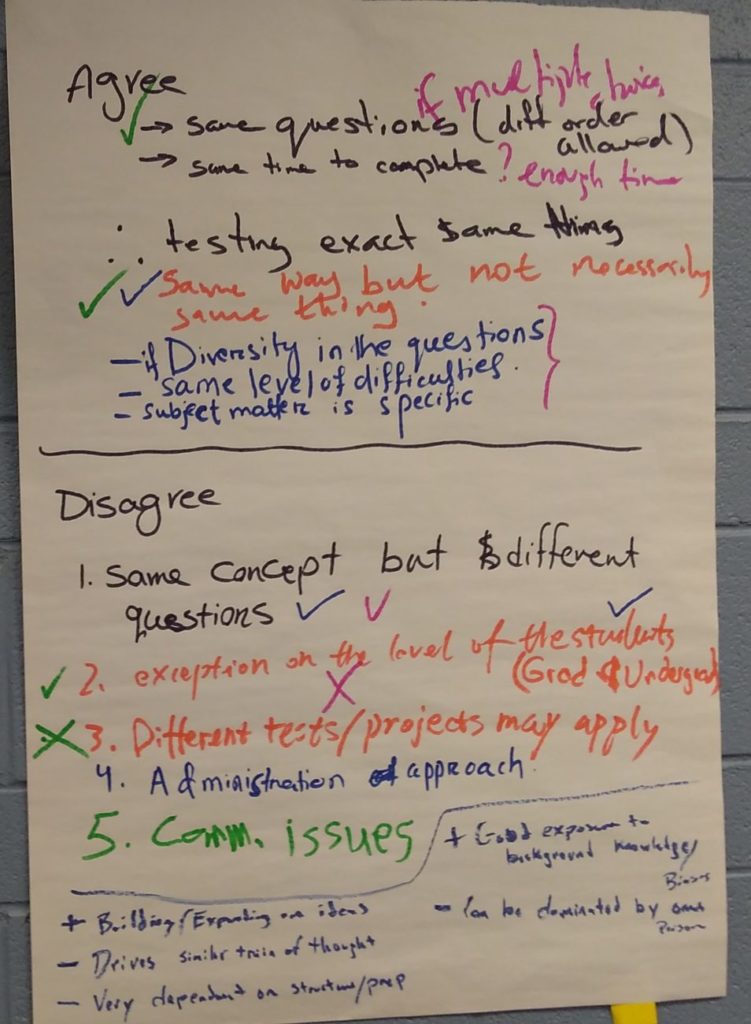 Agree
if multiple, twice,
→ same questions (diff order allowed)
→ same time to complete ? enough time
∴ testing exact same thing
same way but not necessarily
same thing.
- if Diversity in the questions
- same level of difficulties.
- subject matter is specific
Disagree
1. Same concept but different
questions
2. exception on the level of the students
(Grad & Undergrad)
3. Different tests/projects may apply
4. Administration approach.
5. Comm. issues
+ Good exposure to
background knowledge/
Biases
- Can be dominated by one
Person
+ Building/Expanding on ideas
- Drives similar train of thought
- Very dependent on structure/prep